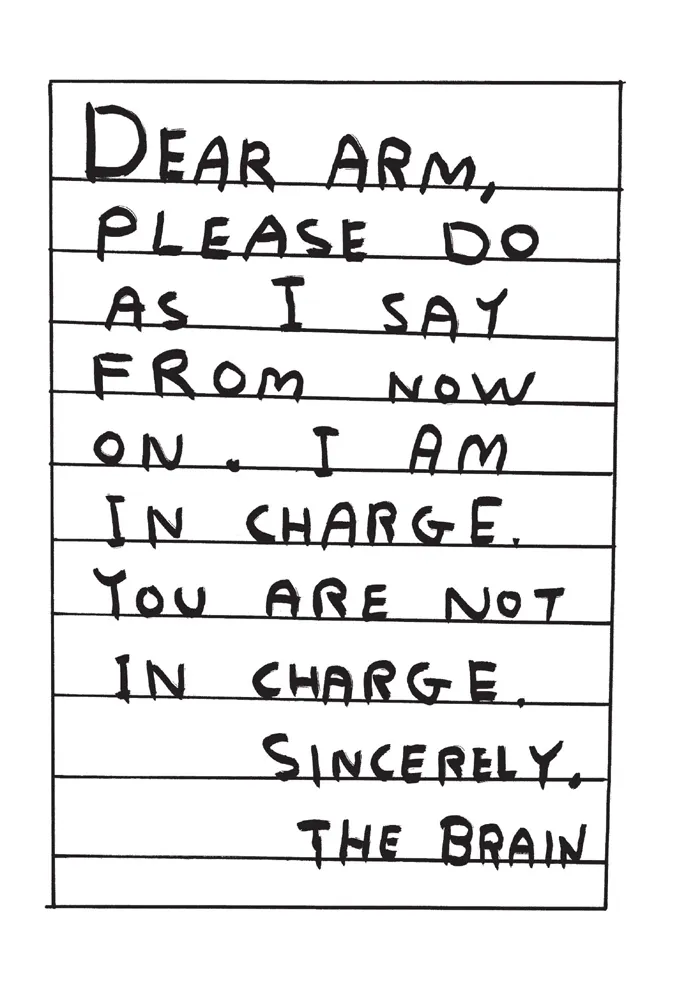 DEAR ARM,
PLEASE DO
AS I SAY
FROM NOW
ON. I AM
IN CHARGE.
YOU ARE NOT
IN CHARGE.
SINCERELY.
THE BRAIN